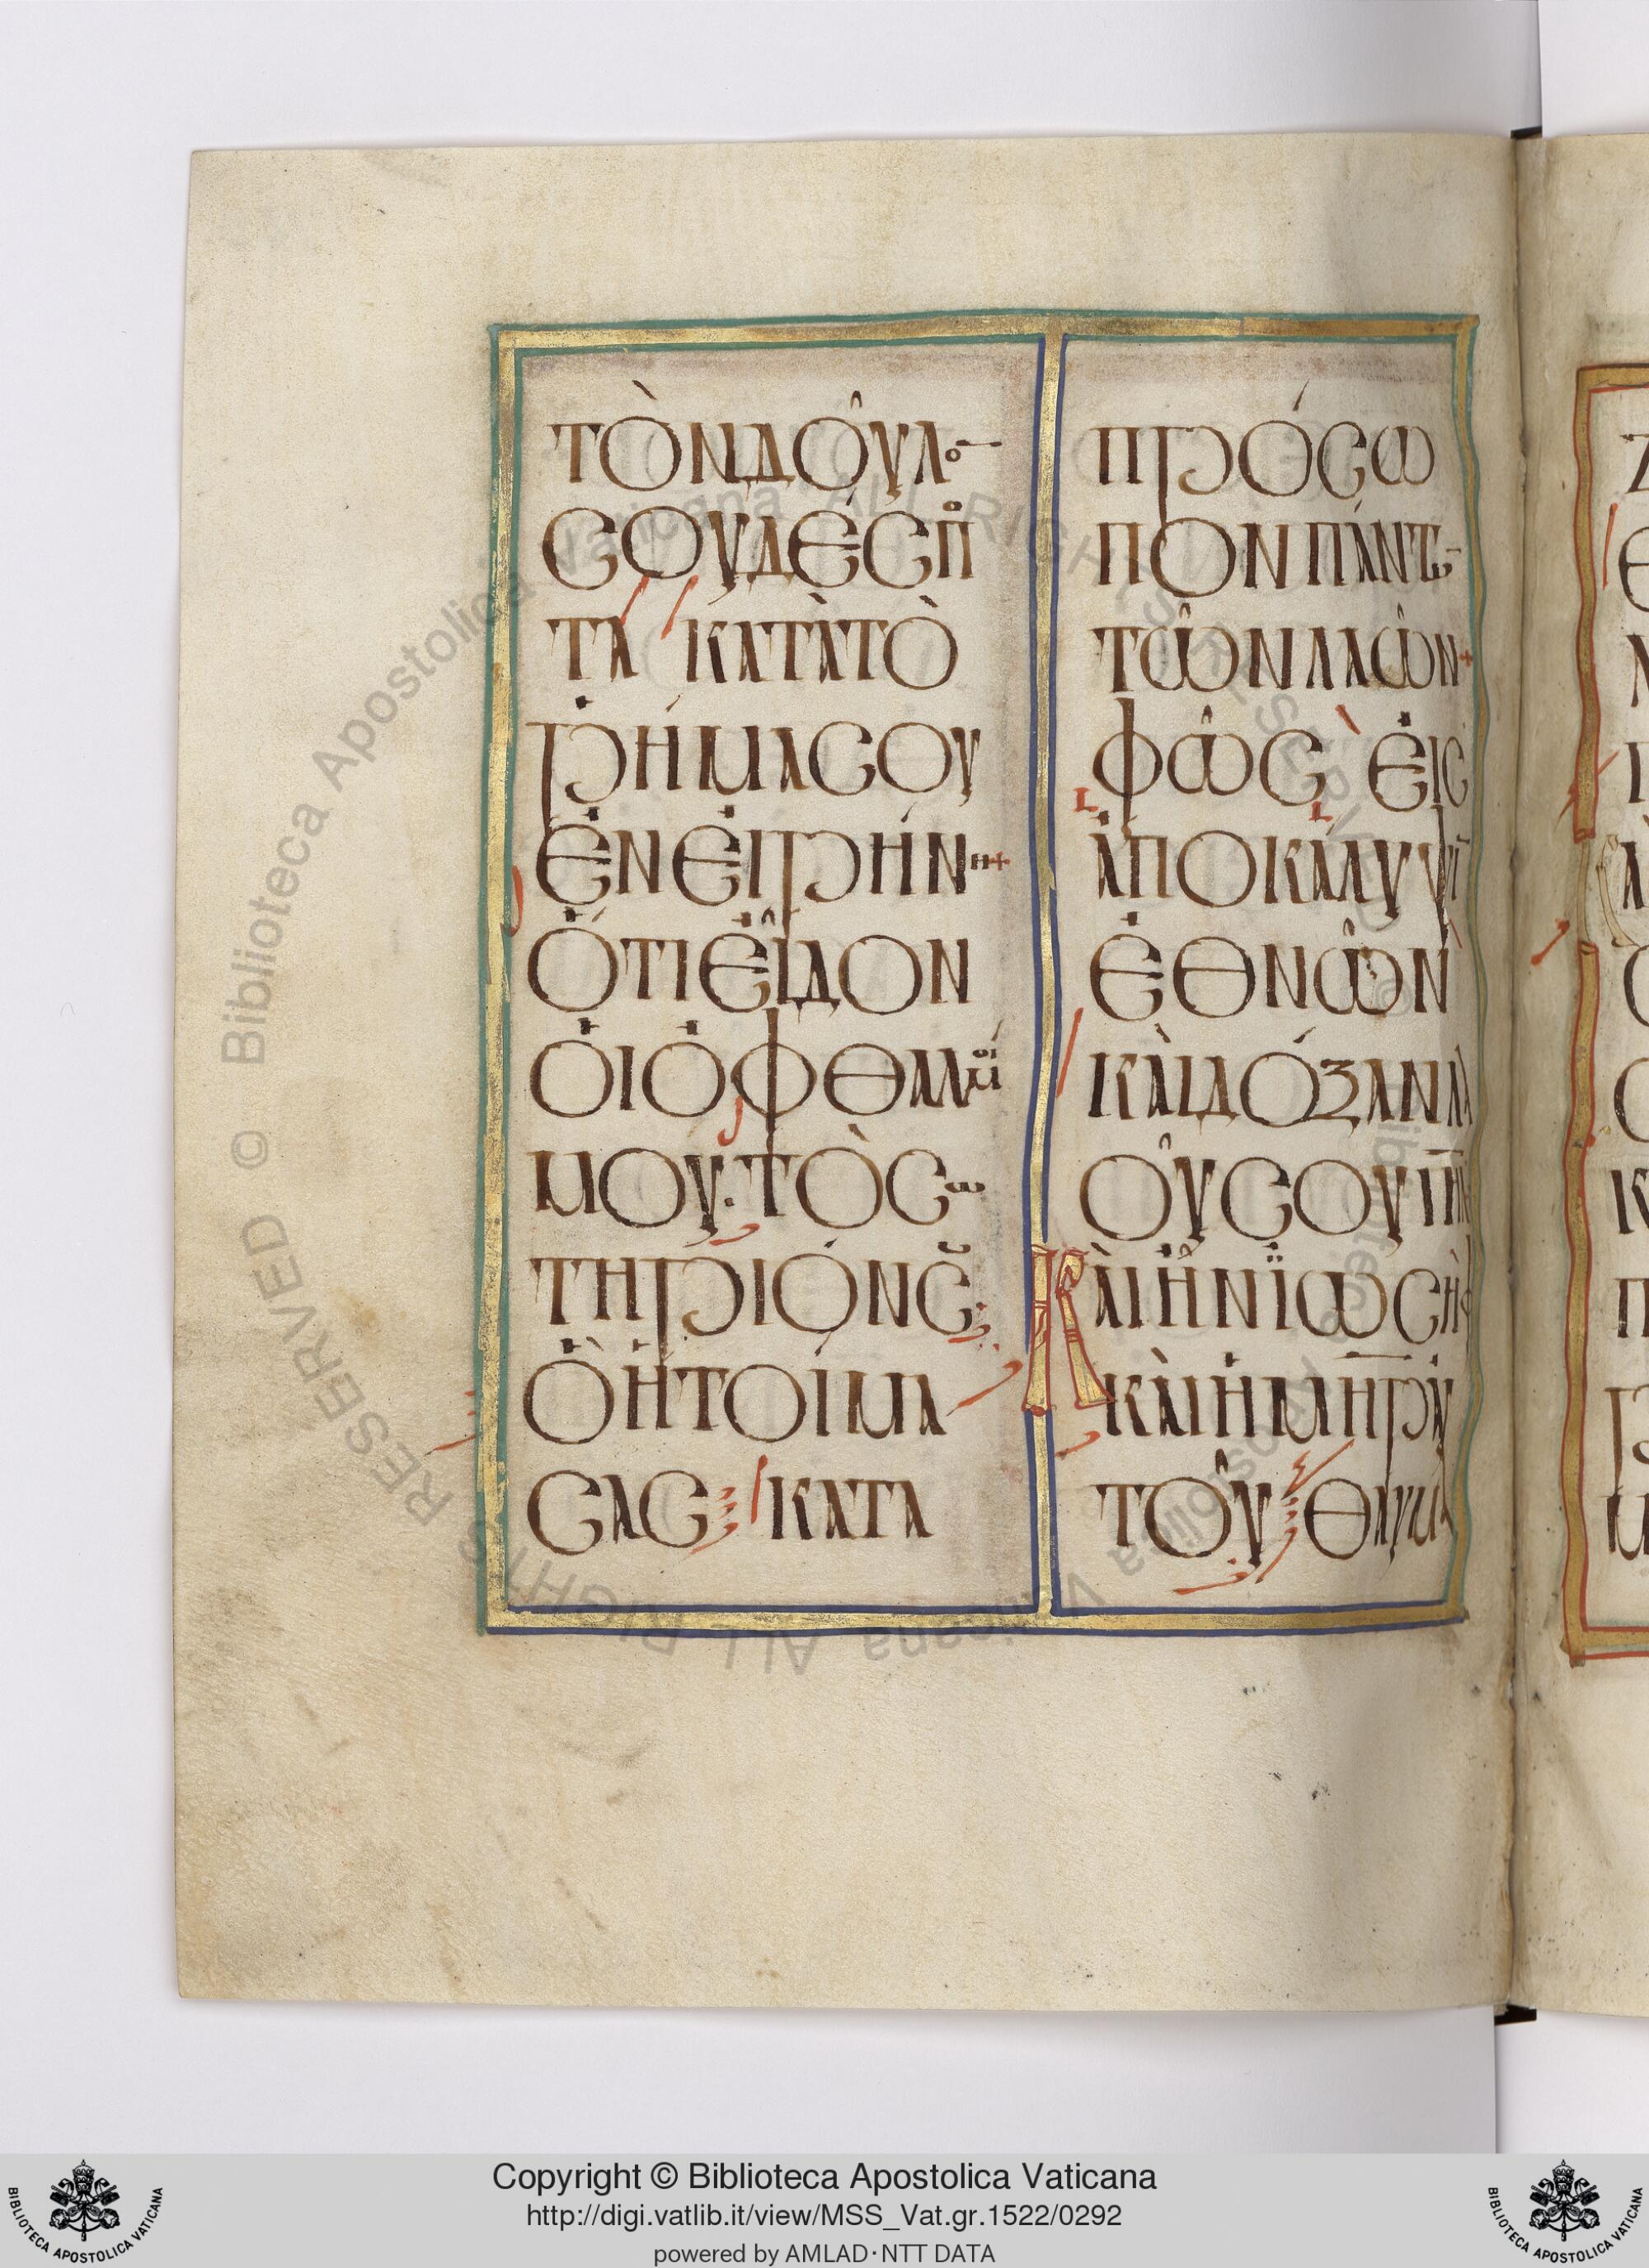 ΤῸΝΔΟΥ͂ΛΟ
ϹΟΥΔΈϹΠΟ
ΤΑ ΚΑΤᾺΤῸ
ῬΉΜΑϹΟΥ
ἘΝΕἸΡΉΝΗ+
ὍΤΙΕἾΔΟΝ
ὉΙὈΦΘΑΛΜΟΊ
ΜΟΥ·ΤῸϹΩ
ΤΗΡΙΌΝϹΟΥ
ὋἩΤΟΊΜΑ
ϹΑϹ ΚΑΤΑ
ΠΡΌϹΩ
ΠΟΝΠΆΝΤΩ
ΤΩ͂ΝΛΑΩ͂Ν+
ΦΩ͂Ϲ ἘΙϹ
ἈΠΟΚΆΛΥΨΙ
ἘΘΝΩ͂Ν
ΚᾺΙΔΌΞΑΝΛΑ
ΟΥ͂ϹΟΥΙΗΛ
ΚᾺΙἮΝΪΩϹῊΦ
ΚᾺΙἩΜΗΡᾺΥ
ΤΟΥ͂ ΘΑΥΜΑ
© Biblioteca Apostolica Vaticana ALL RIGHTS RESERVED
Copyright © Biblioteca Apostolica Vaticana
http://digi.vatlib.it/view/MSS_Vat.gr.1522/0292
powered by AMLAD·NTT DATA
BIBLIOTECA APOSTOLICA VATICANA
BIBLIOTECA APOSTOLICA VATICANA